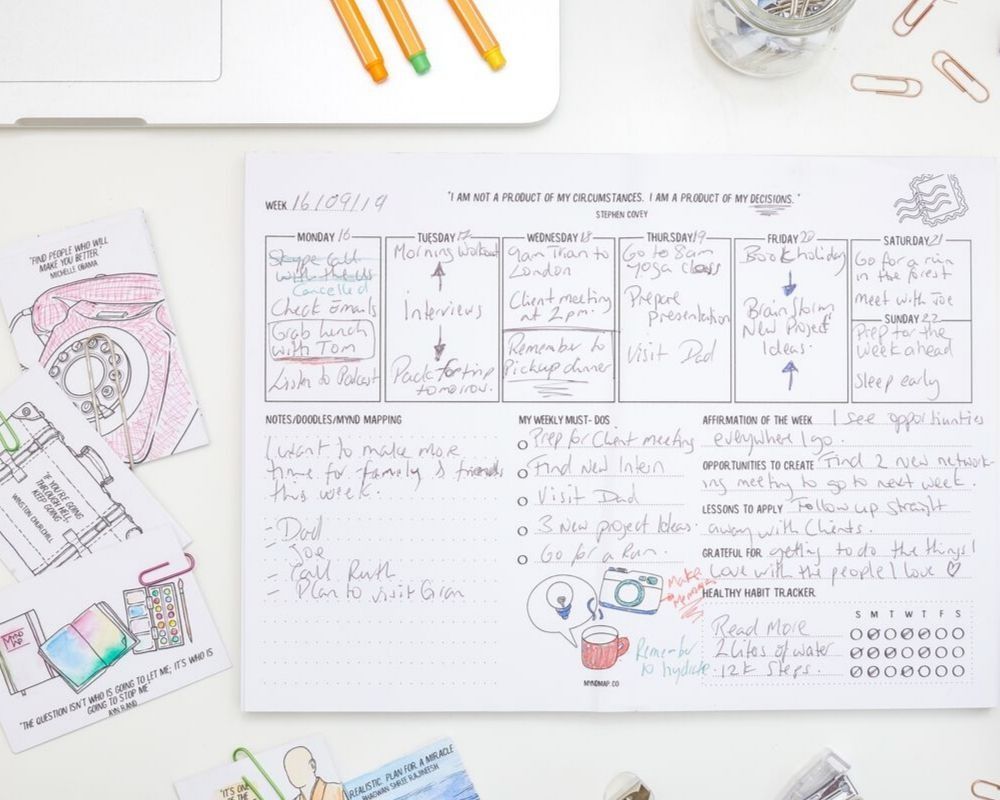 WEEK 16/09/19
"I AM NOT A PRODUCT OF MY CIRCUMSTANCES. I AM A PRODUCT OF MY DECISIONS."
STEPHEN COVEY
MONDAY 16
Skype call
with the US
Cancelled
Check Emails
Grab lunch
with Tom
Listen to Podcast
TUESDAY 17
Morning Workout
Interviews
Pack for trip
tomorrow.
WEDNESDAY 18
9am Train to
London
Client meeting
at 2pm.
Remember to
Pickup dinner
THURSDAY 19
Go to 8am
yoga class
Prepare
presentation
Visit Dad
FRIDAY 20
Book holiday
Brainstorm
New Project
Ideas.
SATURDAY 21
Go for a run
in the forest
meet with Joe
SUNDAY 22
Prep for the
week ahead
Sleep early
NOTES/DOODLES/MYND MAPPING
I want to make more
time for family & friends
this week.
- Dad
- Joe
- Call Ruth
- Plan to visit Gran
MY WEEKLY MUST- DOS
Prep for Client meeting
Find New Intern
Visit Dad
3 New project Ideas.
Go for a Run.
Make
Memories
Remember
to hydrate
MYNDMAP.CO
AFFIRMATION OF THE WEEK I see opportunities
everywhere I go.
OPPORTUNITIES TO CREATE Find 2 new network-
ing meeting to go to next week.
LESSONS TO APPLY Follow up straight
away with Clients.
GRATEFUL FOR getting to do the things I
Love with the people I love
HEALTHY HABIT TRACKER
S M T W T F S
Read More
2 Lites of water
12k Steps.
"FIND PEOPLE WHO WILL
MAKE YOU BETTER"
MICHELLE OBAMA
"IF YOU'RE GOING
THROUGH HELL,
KEEP GOING"
WINSTON CHURCHILL
MYND
MAP
"THE QUESTION ISN'T WHO IS GOING TO LET ME; IT'S WHO IS
GOING TO STOP ME
AYN RAND
"IT'S ONE
OF THE
REALISTIC. PLAN FOR A MIRACLE
BHAGWAN SHREE RAJNEESH